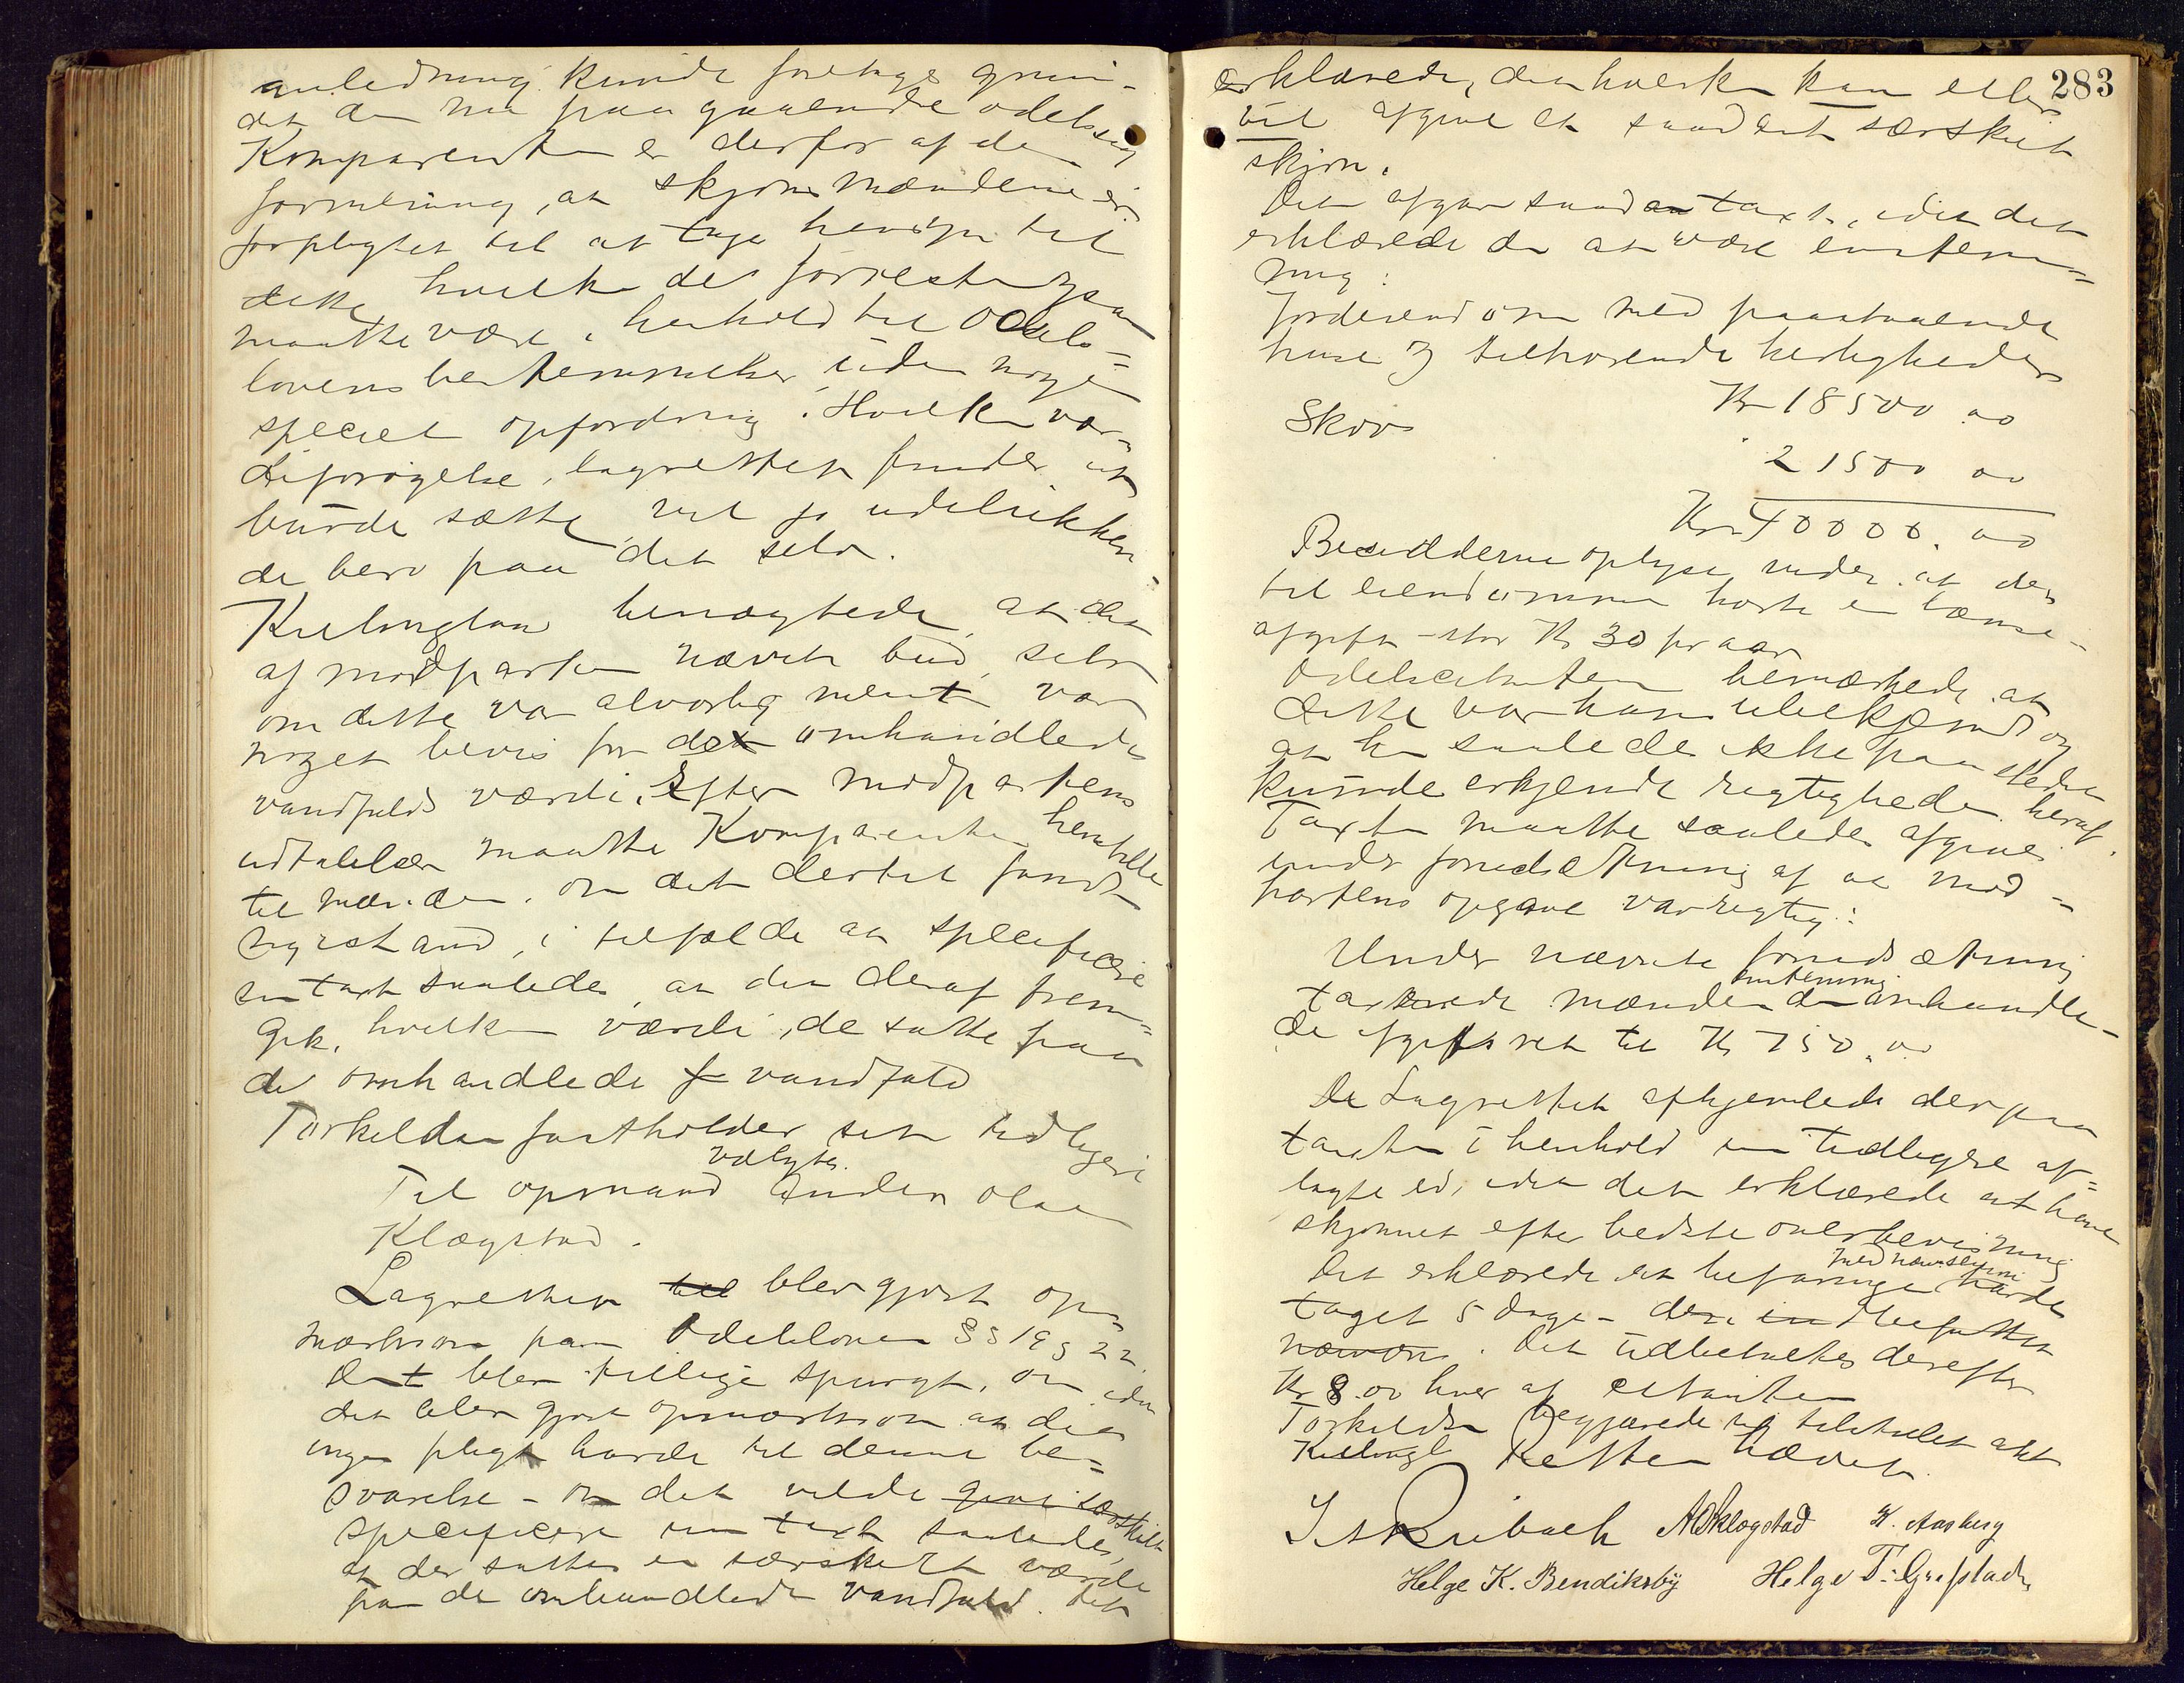 anledning kunde foretages grun-
det den nu paagaaende odelssag
Komparenten er derfor af den
formening, at skjønsmændene er
forpligtet til at tage hensyn til
dette, hvilke det forresten ogsaa
maatte være i henhold til Odels-
lovens bestemmelser uden nogen
speciel opfordring. Hvilken vær-
diforøgelse, lagrettet finder at
burde sætte, vil jo udelukken-
de bero paa det selv.
Kielingland benægtede, at det
af modparten nævnte bud, selv
om dette var alvorlig ment, var
noget bevis for det omhandlede
vandfalds værdi. Efter modpartens
udtalelser maatte Komparenten henstille
til mændene, om det dertil fandt
sig istand, i tilfælde at specificere
sin taxt saaledes, at den deraf frem-
gik, hvilken værdi, de satte paa
det omhandlede vandfald
Torkeldsen fastholder sit tidligere
vælgtes
Til opmand Anders Olsen
Klægstad.
Lagrettet til blev gjort op-
mærksom paa Odelsloven §§ 19 og 22.
Det blev tillige spurgt, om iden
det blev gjort opmærksom at det
ingen pligt havde til denne be-
svarelse - om det vilde give særskilt
specificere sin taxt saaledes,
at der sattes en særskilt værdi
paa det omhandlede vandfald. Det
283
erklærede, den hverken kan eller
vil afgive et saadant særskilt
skjøn.
Det afgav saadan taxt, idet det
erklærede den at være enstem-
mig:
Jordeiendom med paastaaende
huse og tilhørende herligheder
Kr 18500 00
Skov
" 21500 00
Kr 40000. 00
Besidderne oplyse videre at der
til eiendommen hørte en lænse-
afgift stor Kr 30 pr aar
Odelscitanten bemærkede, at
dette var ham ubekjendt og
at han saaledes ikke paa stedet
kunde erkjende rigtigheden heraf.
Taxten maatte saaledes afgives
under forudsætning af at mod-
partens opgave var rigtig:
Under nævnte forudsætning
enstemmig
taxerede mændene den omhandle-
de afgiftsret til Kr 750,00
De Lagrettet afhjemlede derpaa
taxten i henhold sin tidligere af-
lagte ed, idet det erklærede at have
skjønnet efter bedste overbevisning
med nævnelsen
Det erklærede at befaringen havde
taget 5 dage - den in befattet
nævnon. Det udbetaltes derefter
Kr 8.00 hver af citanten
Torkeldsen begjærede sig tilstillet akt
Kielingl Retten hævet
I A Reibach AOKlægstad K. Aasberg
Helge K. Bendiksby Helge T. Grefstad